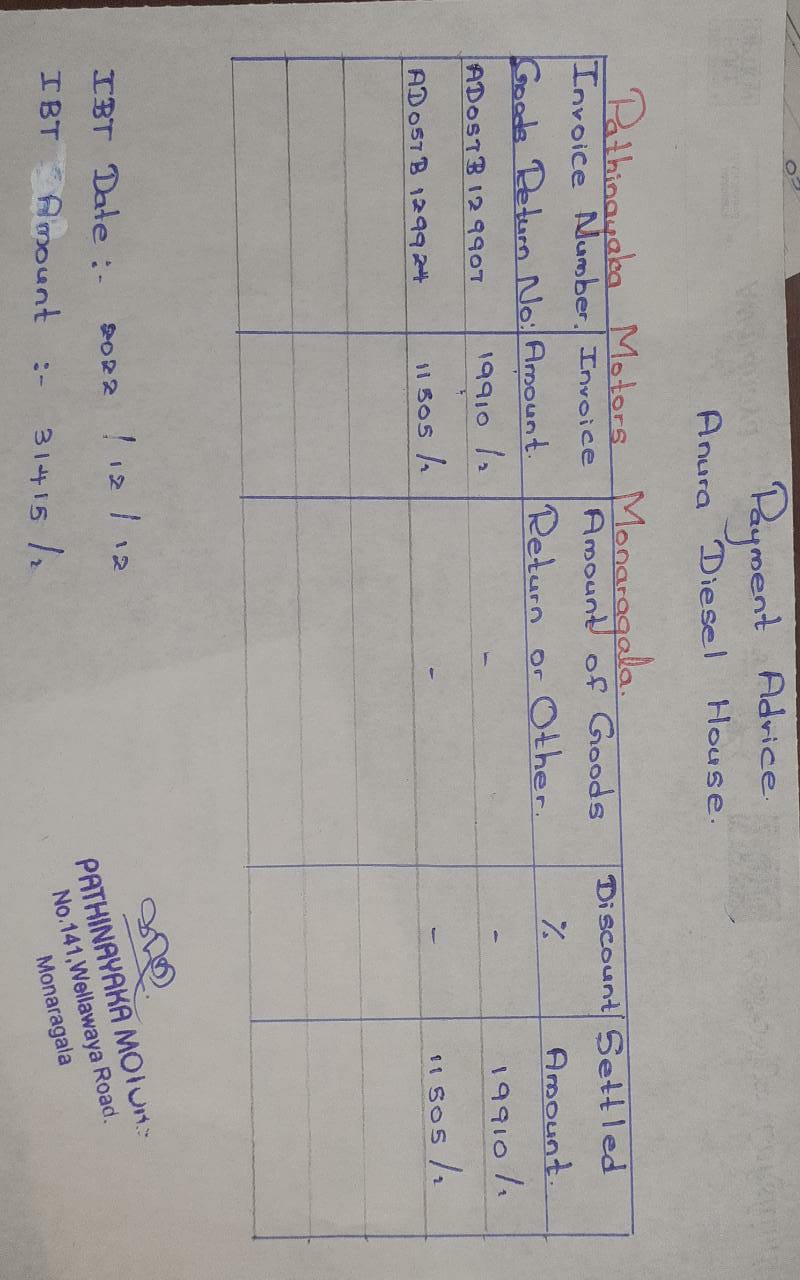 Payment Advice.
Anura Diesel House.
Pathinayaka Motors Monaragala.
Invoice Number. Invoice Amount of Goods Discount Settled
Goods Return No: Amount. Return or Other. % Amount.
AD057B129907 19910/- - - 19910/-
AD057B129924 11505/- - - 11505/-
IBT Date :- 2022/12/12
IBT Amount :- 31415/-
PATHINAYAKA MOTORS
No.141,Wellawaya Road.
Monaragala